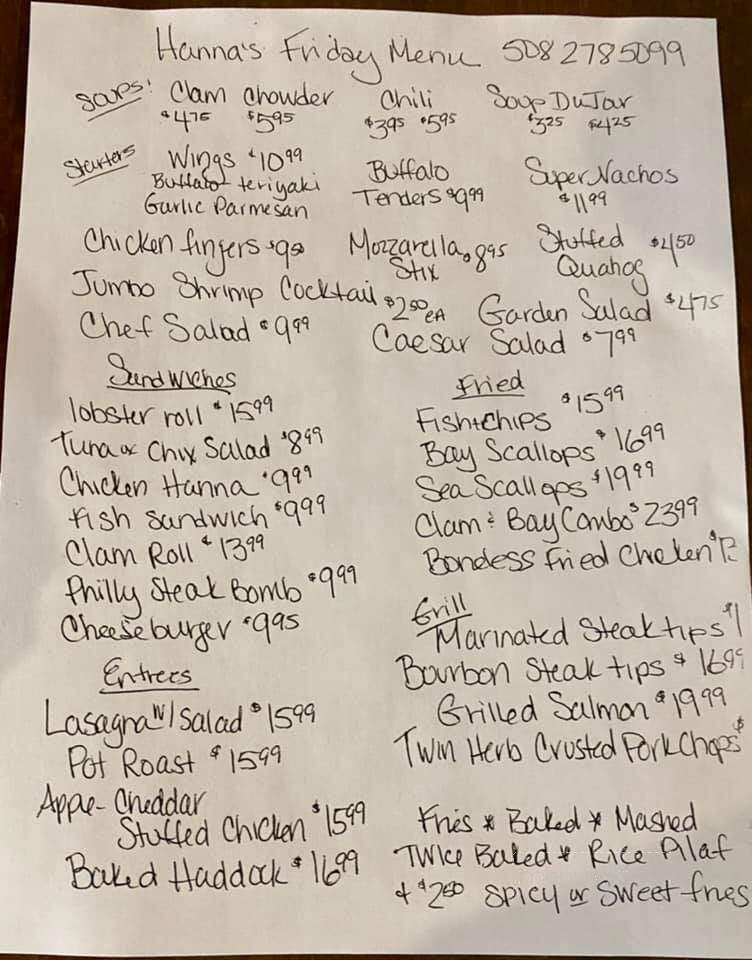 Hanna's Friday Menu 508 2785099
Soups: Clam Chowder Chili Soup DuJar
$4.75 $5.95 $3.95 $5.95 $3.25 $4.25
Starters Wings $10.99 Buffalo Super Nachos
Buffalo-teriyaki Tenders $9.99 $11.99
Garlic Parmesan
Chicken fingers $9.50 Mozzarella $8.95 Stuffed $4.50
Stix Quahog
Jumbo Shrimp Cocktail $2.50 EA Garden Salad $4.75
Chef Salad $9.99 Caesar Salad $7.99
Sandwiches
lobster roll $15.99
Tuna or Chix Salad $8.99
Chicken Hanna $9.99
fish sandwich $9.99
Clam Roll $13.99
Philly Steak Bomb $9.99
Cheeseburger $9.95
Entrees
Lasagna w/ Salad $15.99
Pot Roast $15.99
Apple-Cheddar
Stuffed Chicken $15.99
Baked Haddock $16.99
Fried
Fish+Chips $15.99
Bay Scallops $16.99
Sea Scallops $19.99
Clam & Bay Combo $23.99
Boneless Fried Chicken
Grill
Marinated Steak tips
Bourbon Steak tips $16.99
Grilled Salmon $19.99
Twin Herb Crusted Pork Chops $
Fries * Baked * Mashed
Twice Baked * Rice Pilaf
+ $2.50 Spicy or Sweet fries